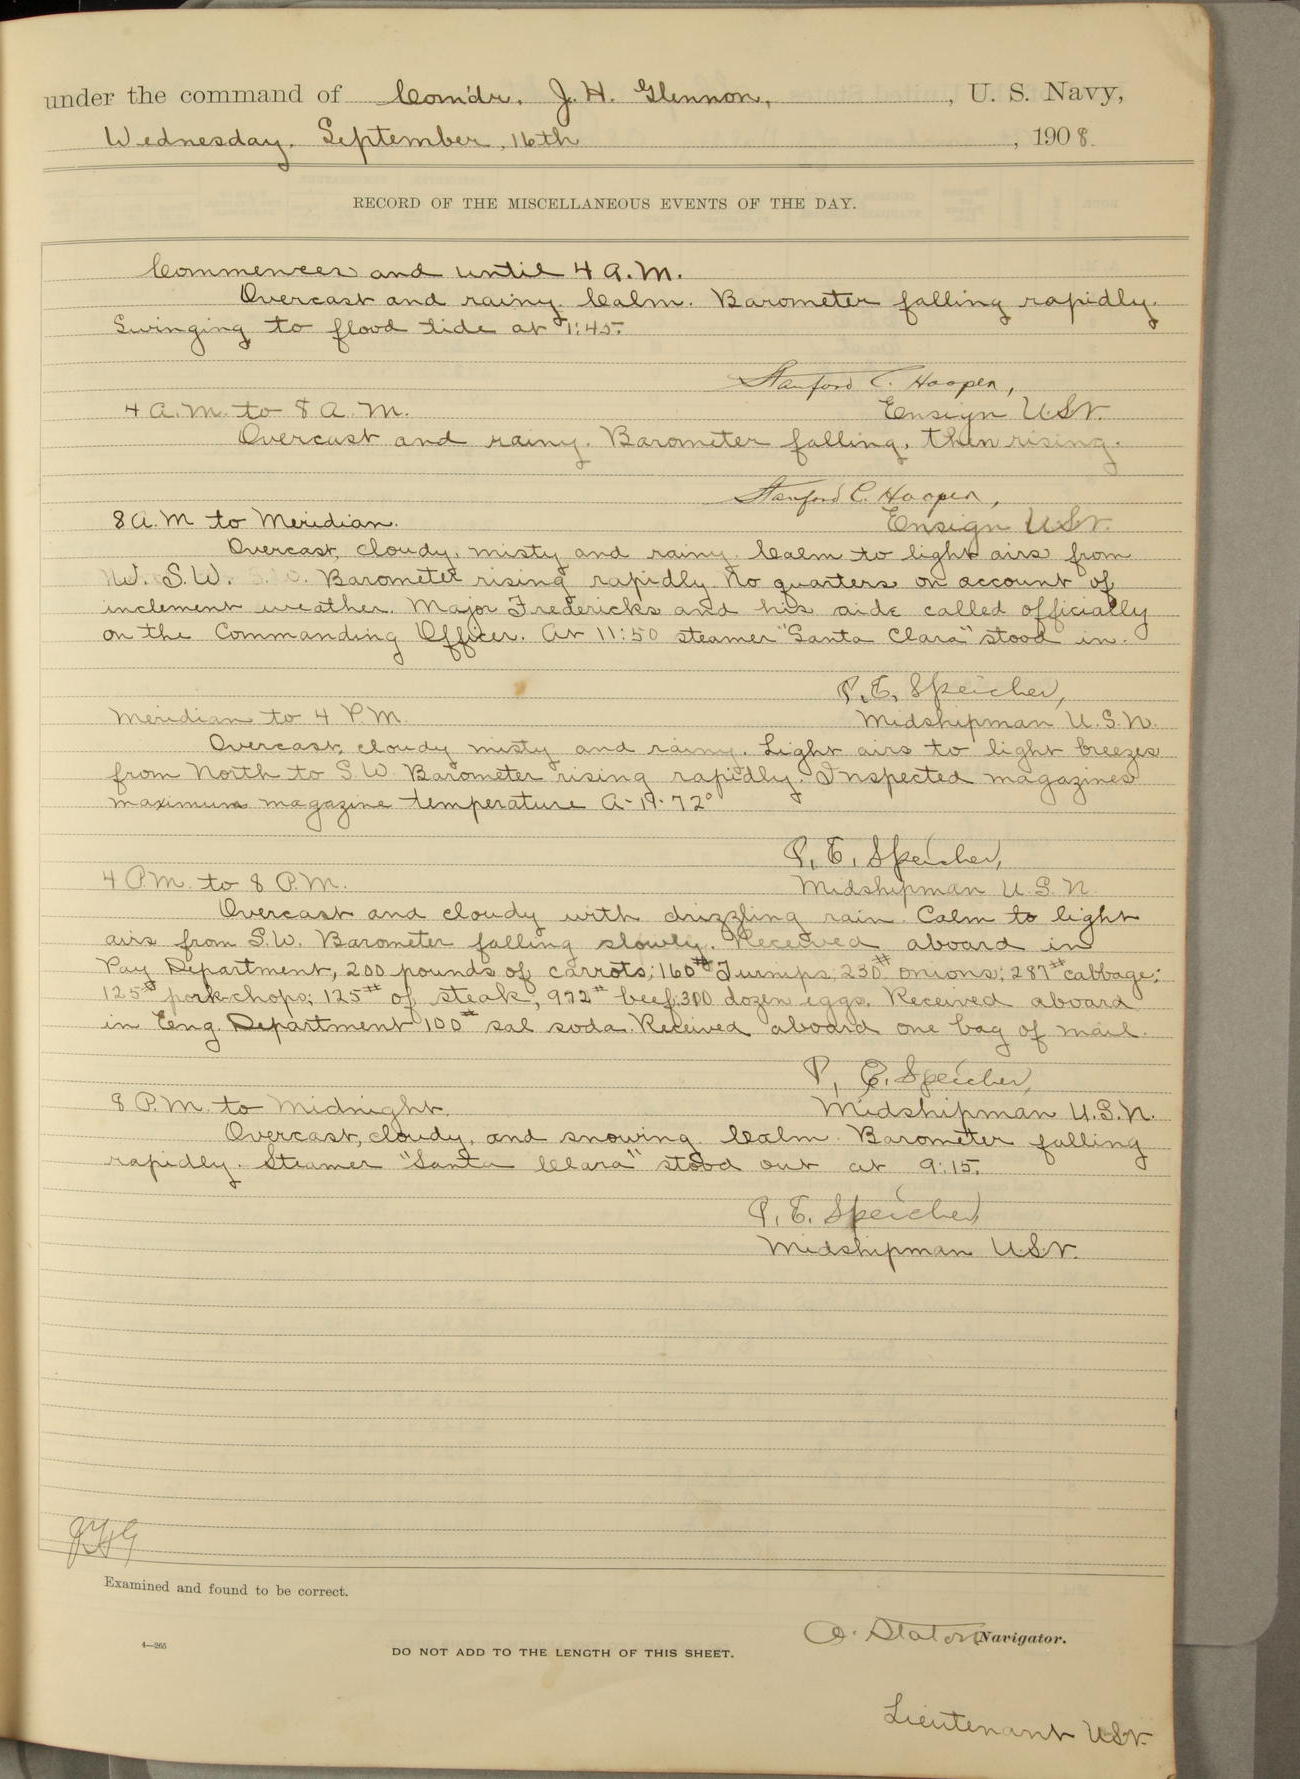 under the command of Com'dr. J. H. Glennon, , U. S. Navy,
Wednesday. September, 16th , 1908.
RECORD OF THE MISCELLANEOUS EVENTS OF THE DAY.
Commences and until 4 A.M.
Overcast and rainy. Calm. Barometer falling rapidly.
Swinging to flood tide at 1:45.
Stanford C. Hooper,
4 A.M. to 8 A.M.
Ensign U.S.N.
Overcast and rainy. Barometer falling, then rising.
Stanford C. Hooper,
8 A.M to Meridian.
Ensign U.S.N.
Overcast, cloudy, misty and rainy. Calm to light airs from
S.W. Barometer rising rapidly. No quarters on account of
inclement weather. Major Fredericks and his aide called officially
on the Commanding Officer. At 11:50 steamer "Santa Clara" stood in.
P. E. Speicher,
Meridian to 4 P.M.
Midshipman U.S.N.
Overcast, cloudy misty and rainy. Light airs to light breezes
from North to S.W. Barometer rising rapidly. Inspected magazines
maximum magazine temperature A-19-72°
P. E. Speicher,
4 P.M. to 8 P.M.
Midshipman U.S.N.
Overcast and cloudy with drizzling rain. Calm to light
airs from S.W. Barometer falling slowly. Received aboard in
Pay Department, 200 pounds of carrots; 160# Turnips; 230# onions; 287# cabbage;
125# pork chops; 125# of steak; 972# beef; 300 dozen eggs. Received aboard
in Eng. Department 100# sal soda. Received aboard one bag of mail.
P. E. Speicher,
8 P.M. to Midnight.
Midshipman U.S.N.
Overcast, cloudy, and snowing. Calm. Barometer falling
rapidly. Steamer "Santa Clara" stood out at 9:15.
P. E. Speicher,
Midshipman U.S.N.
JHG
Examined and found to be correct.
A. Staton Navigator.
4—265
DO NOT ADD TO THE LENGTH OF THIS SHEET.
Lieutenant U.S.N.